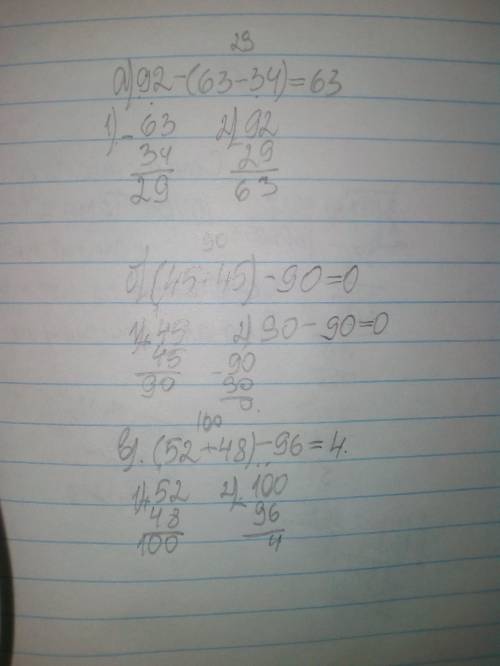 29
а) 92-(63-34)=63
1) - 63 2) 92
34 29
29 63
90
б) (45+45)-90=0
1) + 45 2) 90-90=0
45 - 90
90 90
0.
100
в). (52+48)-96=4.
1) + 52 2) - 100
48 96
100 4